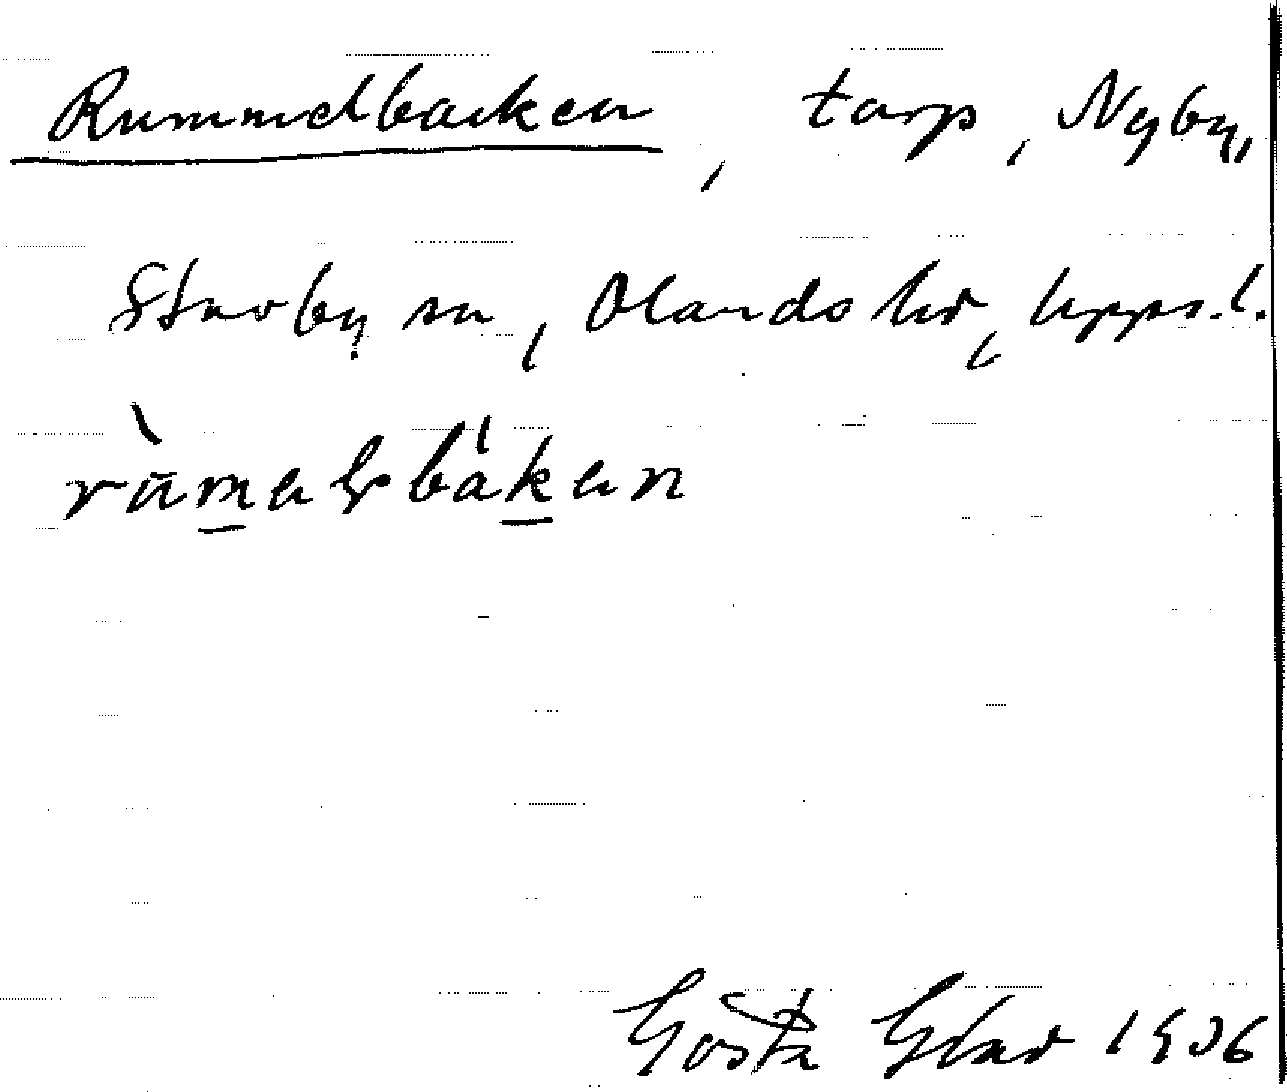 Rummelbacken, torp, Nyby,
Stavby sn, Olands hd, Upps. l.
rùmelbákan
Gösta 1936